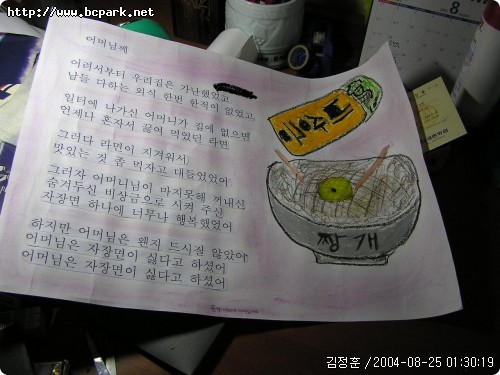 http://www.bcpark.net
어머님께
어려서부터 우리집은 가난했었고
남들 다하는 외식 한번 한적이 없었고
일터에 나가신 어머니가 집에 없으면
언제나 혼자서 끓여 먹었던 라면
그러다 라면이 지겨워서
맛있는 것 좀 먹자고 대들었었어
그러자 어머니님이 마지못해 꺼내신
숨겨두신 비상금으로 시켜 주신
자장면 하나에 너무나 행복했었어
하지만 어머님은 왠지 드시질 않았어
어머님은 자장면이 싫다고 하셨어
어머님은 자장면이 싫다고 하셨어
짱개
8
김정훈 / 2004-08-25 01:30:19